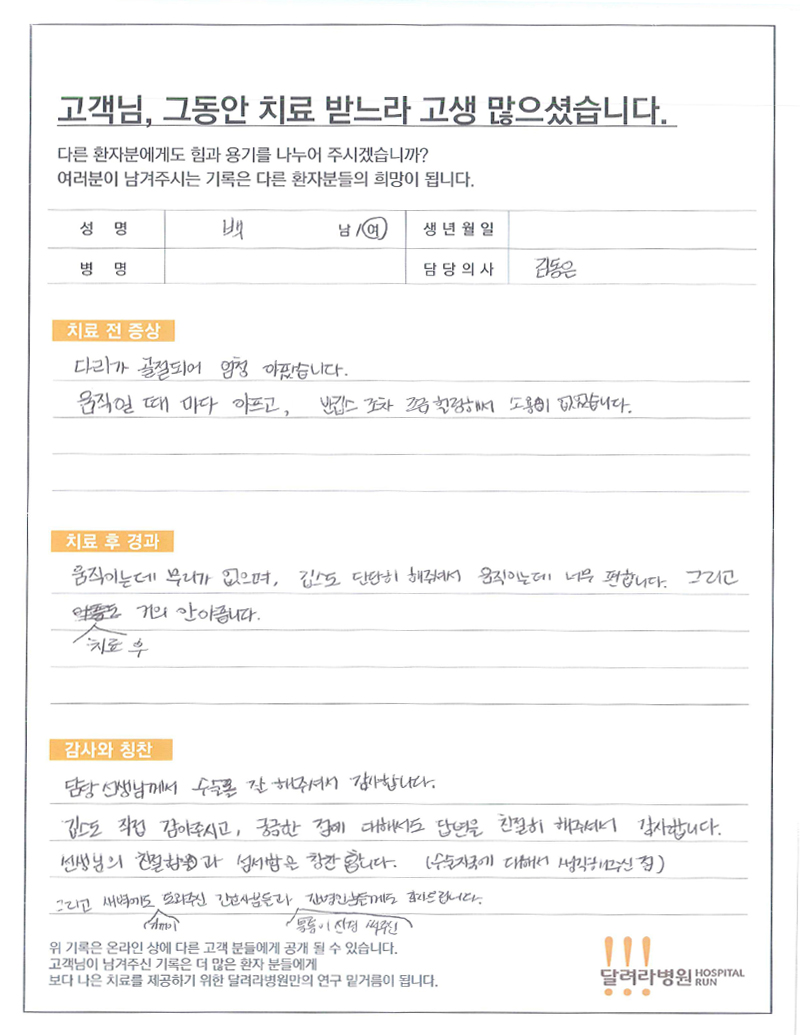 고객님, 그동안 치료 받느라 고생 많으셨습니다.
다른 환자분에게도 힘과 용기를 나누어 주시겠습니까?
여러분이 남겨주시는 기록은 다른 환자분들의 희망이 됩니다.
성 명 백 남 / 여 생년월일
병 명 담당의사 김동은
치료 전 증상
다리가 골절되어 엄청 아팠습니다.
움직일 때 마다 아프고, 반깁스 조차 조금 헐렁해서 도움이 없었습니다.
치료 후 경과
움직이는데 무리가 없으며, 깁스도 단단히 해주셔서 움직이는데 너무 편합니다. 그리고
거의 안아픕니다.
치료 후
감사와 칭찬
담당 선생님께서 수술을 잘 해주셔서 감사합니다.
깁스도 직접 감아주시고, 궁금한 점에 대해서도 답변을 친절히 해주셔서 감사합니다.
선생님의 친절함과 섬세함은 칭찬합니다. (수술자국에 대해서 생각해주신 점)
그리고 새벽에도 도와주신 간호사분들과 간병인분들께도 감사드립니다.
특별히 신경 써주신
위 기록은 온라인 상에 다른 고객 분들에게 공개 될 수 있습니다.
고객님이 남겨주신 기록은 더 많은 환자 분들에게
보다 나은 치료를 제공하기 위한 달려라병원만의 연구 밑거름이 됩니다.
달려라병원 HOSPITAL RUN